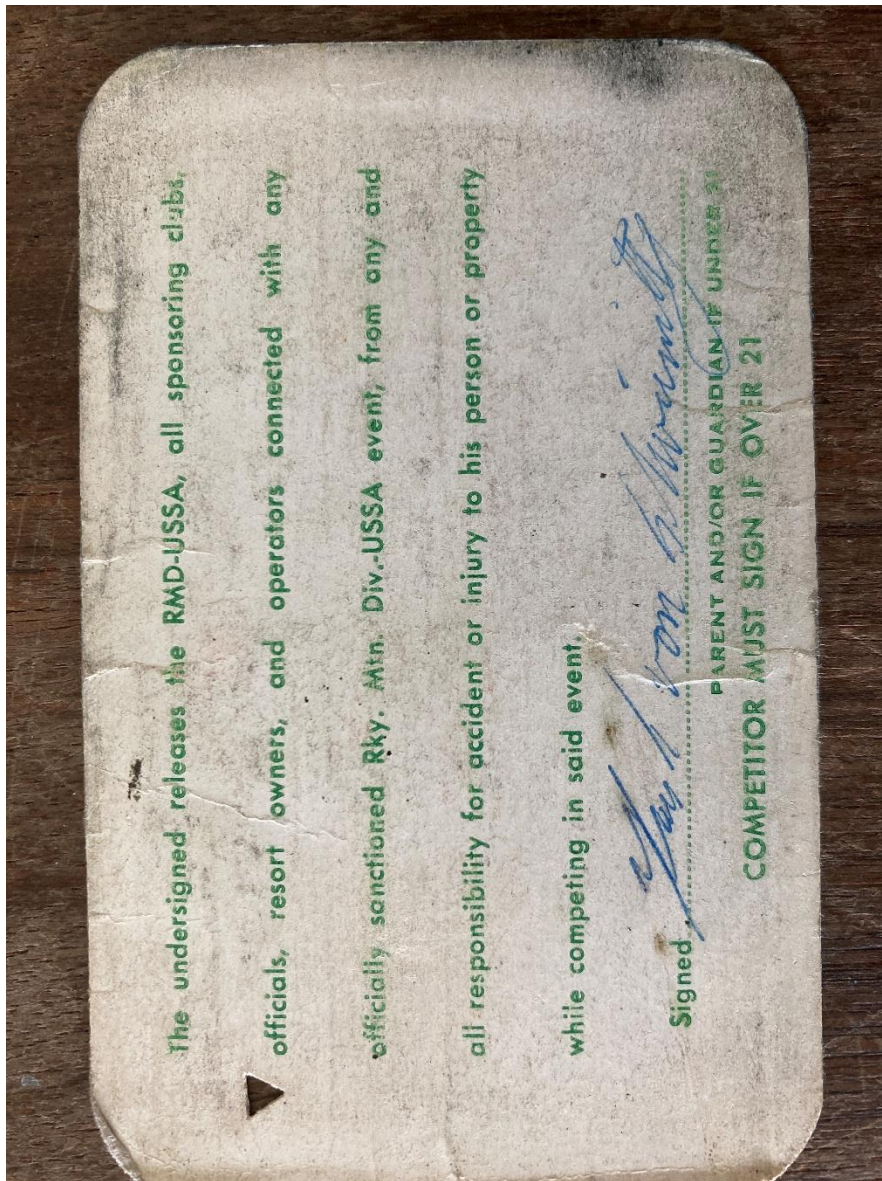 The undersigned releases the RMD-USSA, all sponsoring clubs,
officials, resort owners, and operators connected with any
officially sanctioned Rky. Mtn. Div.-USSA event, from any and
all responsibility for accident or injury to his person or property
while competing in said event.
Signed von
PARENT AND/OR GUARDIAN IF UNDER 21
COMPETITOR MUST SIGN IF OVER 21